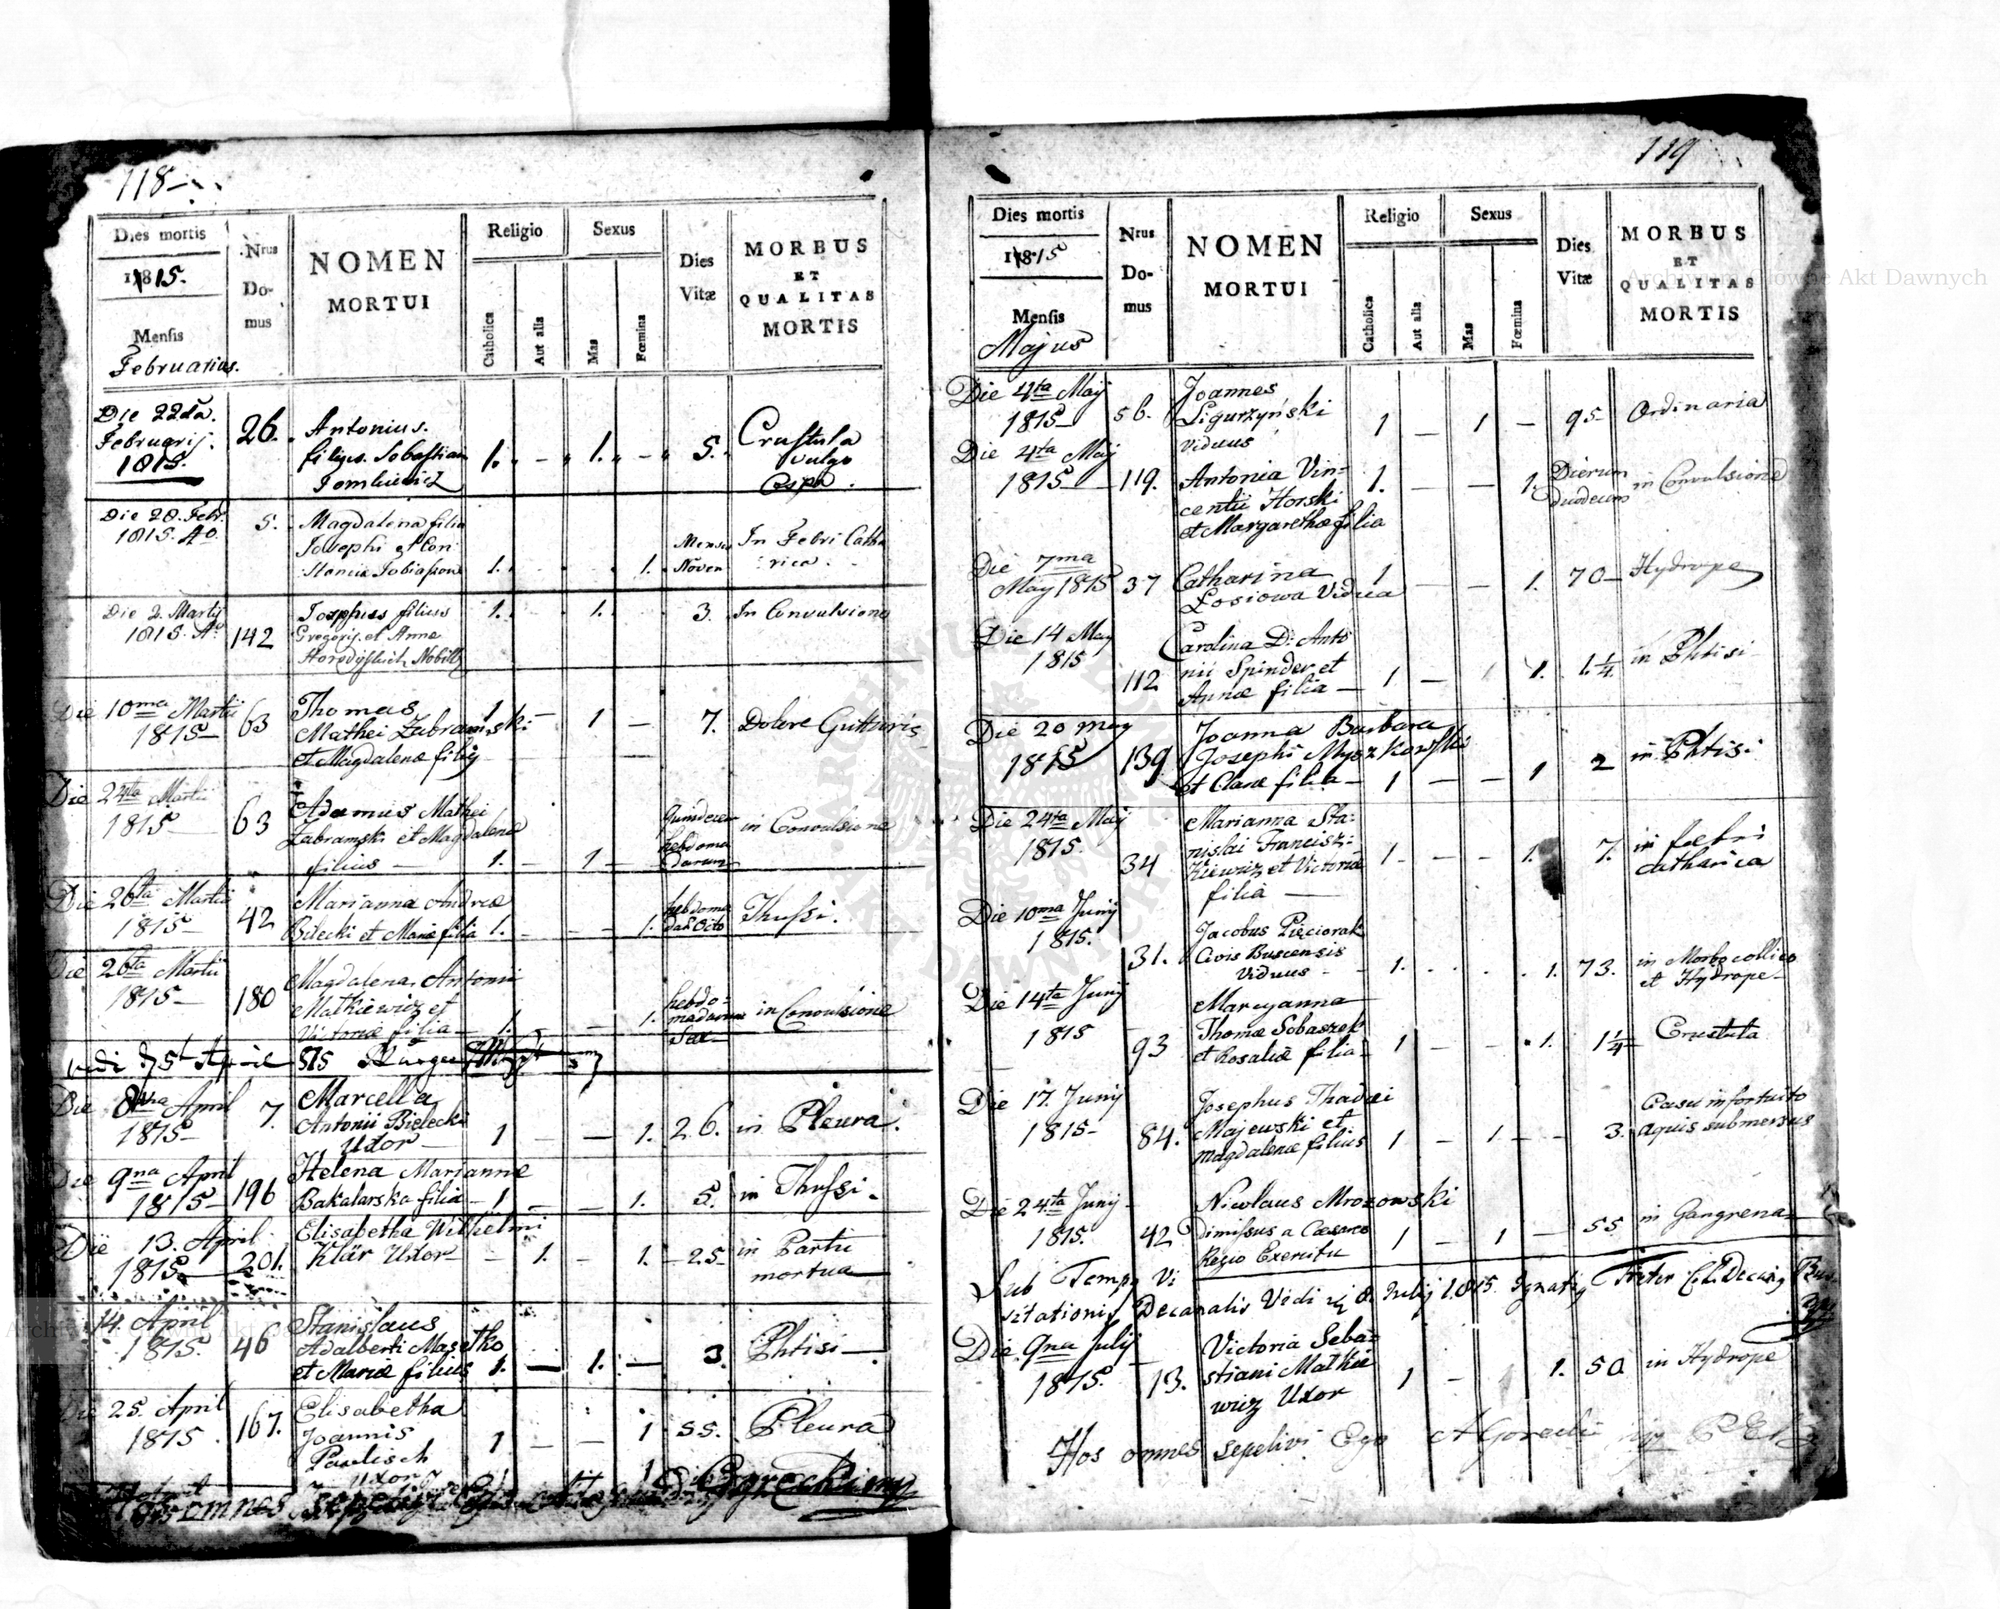 118
Dies mortis
1815.
Mensis
Februarius.
Nrus
Do-
mus
NOMEN
MORTUI
Religio
Catholica
Aut alia
Sexus
Mas
Fœmina
Dies
Vitæ
MORBUS
ET
QUALITAS
MORTIS
Die 22da.
Februarij.
1815.
26.
Antonius.
filius Sebastian
1. - 1. - 5.
Crustula
vulgo
Die 28. Febr.
1815. Ao
5.
Magdalena filia
Josephi et Con
stancia
1. 1.
Mensis
Noven
In Febri Catha
rica.
Die 2. Martij
1815. Ao
142
Josephus filius
Gregorij et Anna
Nobili
1. 1. 3.
In Convulsione
Die 10ma Martii
1815-
63
Thomas
Mathei Zabramski
et Magdalenæ filiq
1 - 1 - 7.
Dolore Gutturis
Die 24ta Martii
1815
63
Adamus Mathei
Zabramski et Magdalenæ
filius -
1. - 1 -
hebdoma
darum
in Convulsione
Die 26ta Martii
1815-
42
Marianna Andreæ
Bilecki et Mariæ filia
1. - - 1.
hebdoma
dar Octo
Thussi.
Die 26ta Martii
1815-
180
Magdalena Antonii
Matkiewicz et
Victoriæ filia
1. - 1.
hebdo-
madarum
Sex
in Convulsione
April 815
Die 8va April
1815-
7.
Marcella
Antonii Bielecki
Uxor
1 - - 1. 26.
in Pleura.
Die 9na April
1815-
196
Helena Marianna
Bakalarska filia
1 - - 1. 5.
in Thussi.
Die 13. April
1815.
201.
Elisabetha Wilhelmi
Klär Uxor
- 1. - 1. 25-
in Partu
mortua
14. April
1815.
46
Stanislaus
Adalberti
et Mariæ filius
1. - 1. - 3.
Phtisi
25. April
1815.
167.
Elisabetha
Joannis
Pavlisch
Uxor
1 - - 1 55.
Pleura
omnes
119
Dies mortis
1815
Mensis
Majus
Nrus
Do-
mus
NOMEN
MORTUI
Religio
Catholica
Aut alia
Sexus
Mas
Fœmina
Dies
Vitæ
MORBUS
ET
QUALITAS
MORTIS
Die 4ta May
1815
56.
Joannes
Ligurzyński
viduus
1 - 1 - 95-
Ordinaria
Die 4ta May
1815
119.
Antonia Vin-
centii Horski
et Margarethæ filia
1. - - 1.
Dierum
duodecim
in Convulsione
Die 7ma
May 1815
37
Catharina
Losiowa Vidua
1 - - 1. 70-
Hydrope
Die 14 May
1815
112
Carolina D: Anto
nii Spinder et
Annæ filia -
1 - 1. 1 1/4.
in Phtisi
Die 20 may
1815
139
Joanna Barbara
Josephi Myszkowski
et Claræ filia -
1 - - 1 2
in Phtisi
Die 24ta May
1815.
34
Marianna Sta-
nislai Franciszi-
kiewicz et Victoriæ
filia -
1 - - 1. 7.
in febri
catharica
Die 10ma Junij
1815.
31.
Jacobus Pięciorak
Civis Buscensis
Viduus -
1. 1. 73.
in Morbo collico
et Hydrope-
Die 14ta Junij
1815
93
Maryanna
Thomæ Sobaszek
et Rosaliæ filia
1 - - 1. 1 1/4
Crustula
Die 17. Junij
1815-
84.
Josephus Thadæi
Majewski et
Magdalenæ filius
1 - 1 - 3.
Casu infortuito
aquis submersus
Die 24ta Junij
1815.
42
Nicolaus Mrozowski
dimissus a Cæsareo
Regio Exercitu
1 - 1 - 55
in Gangrena
Sub Tempq Vi
sitationis Decanalis Vidi 8. Julij 1815. Ignatiq
Die 9na July
1815.
13.
Victoria Seba-
stiani Matkie
wicz Uxor
1 - 1. 50.
in Hydrope
Hos omnes sepelivi Ego
Archiwum Główne Akt Dawnych